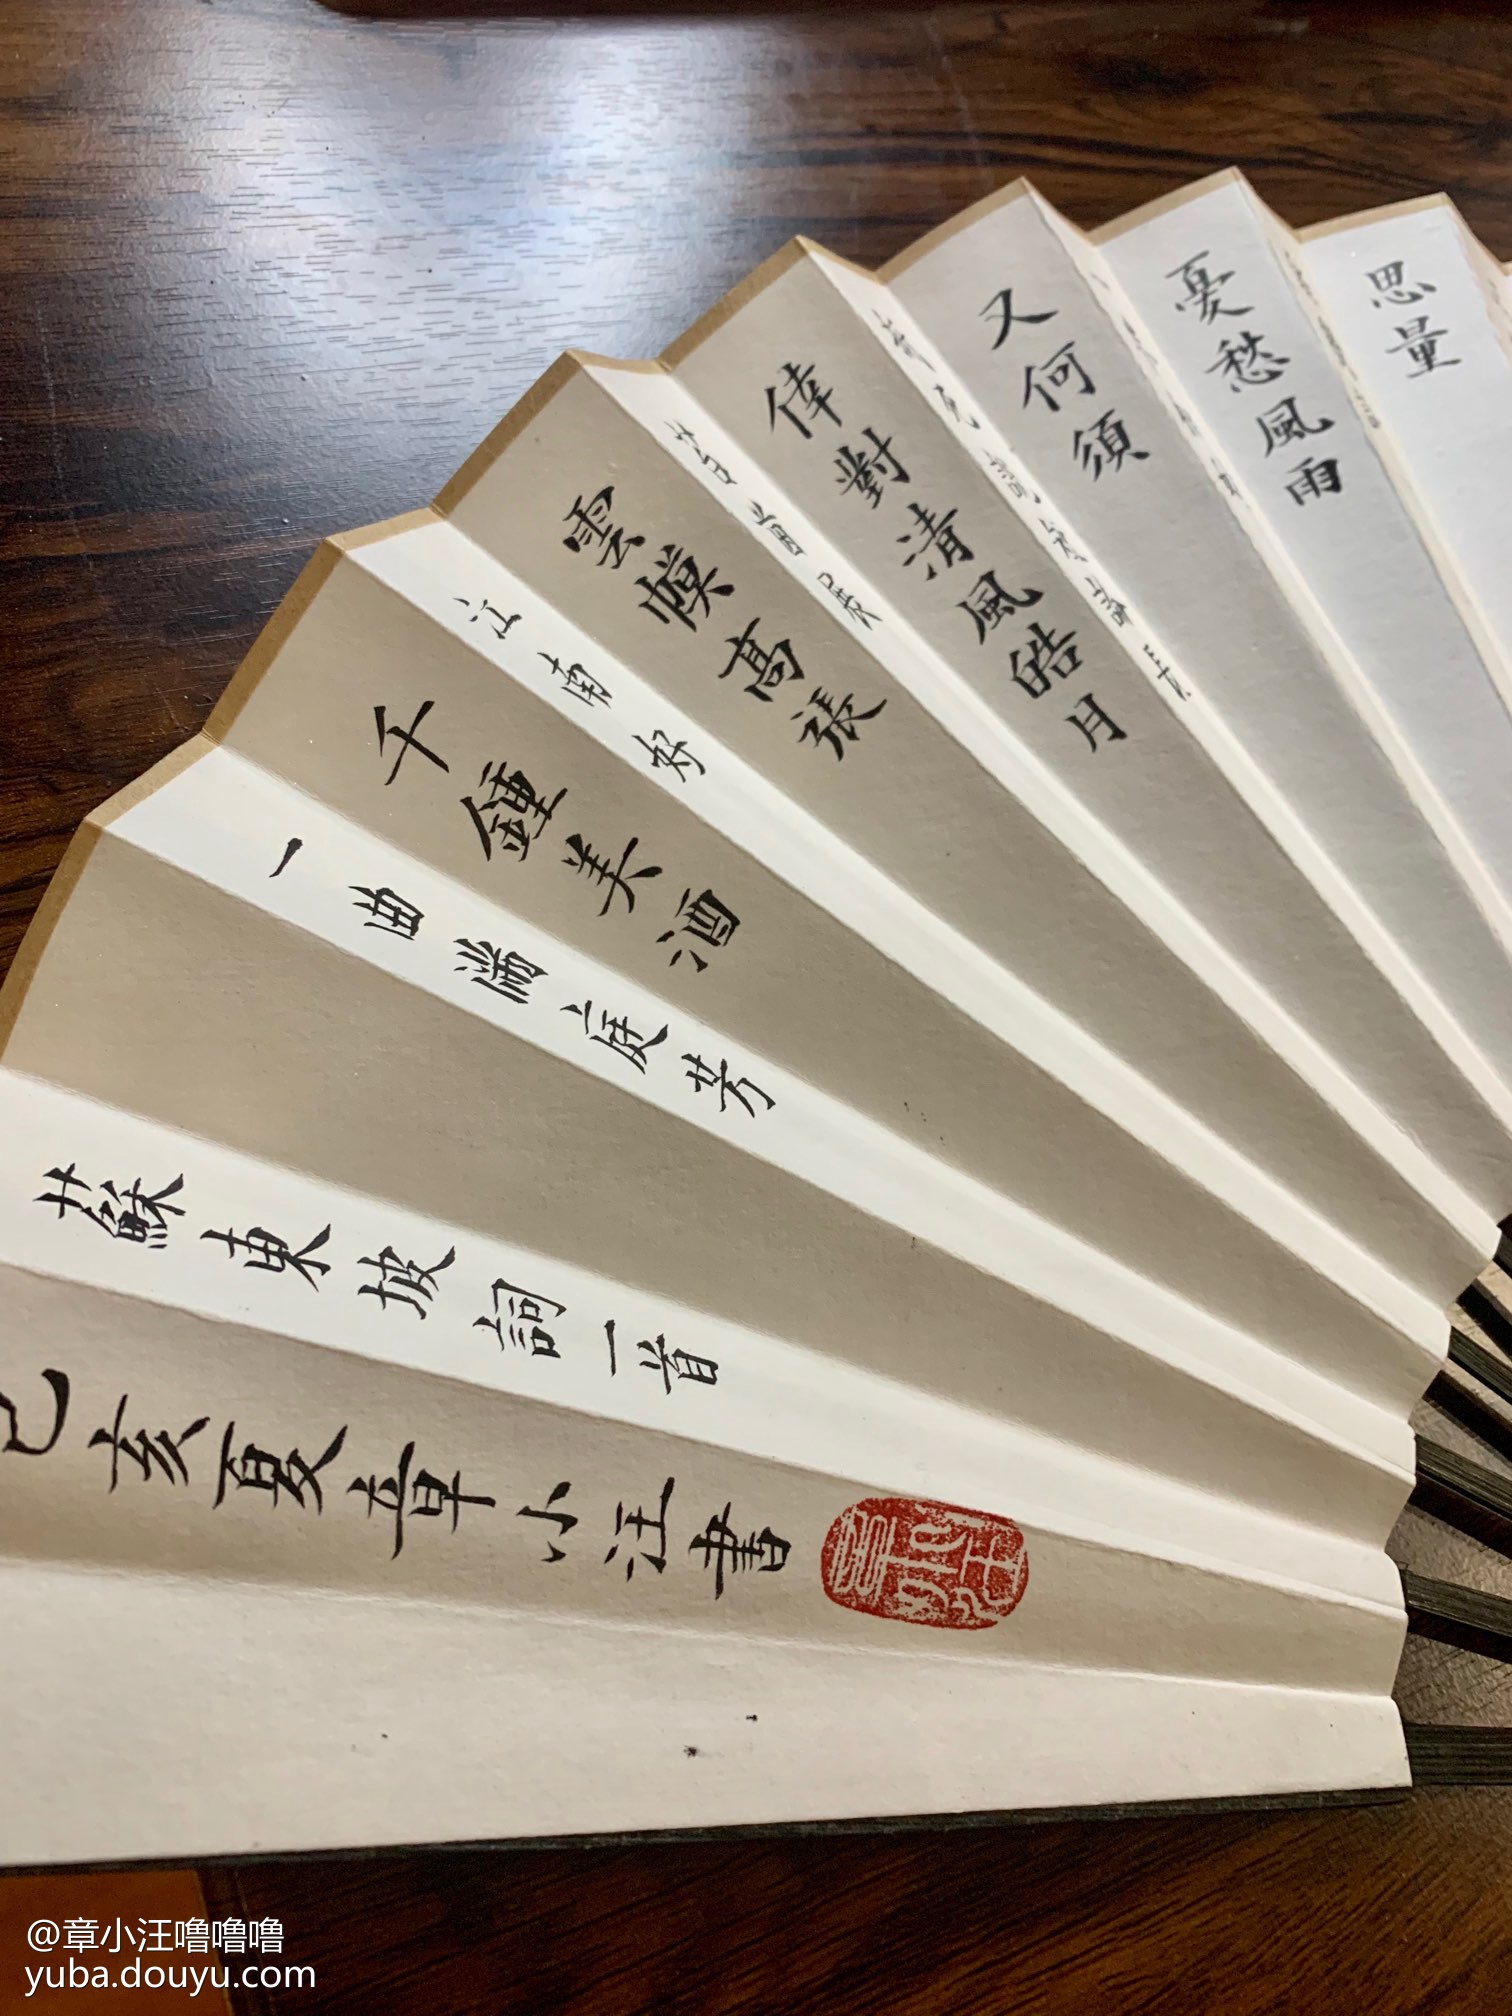 思量
憂愁風雨
又何須
死說短論長
倖對清風皓月
苔茵展
雲幙高張
江南好
千鍾美酒
一曲滿庭芳
蘇東坡詞一首
己亥夏章小汪書
@章小汪噜噜噜
yuba.douyu.com